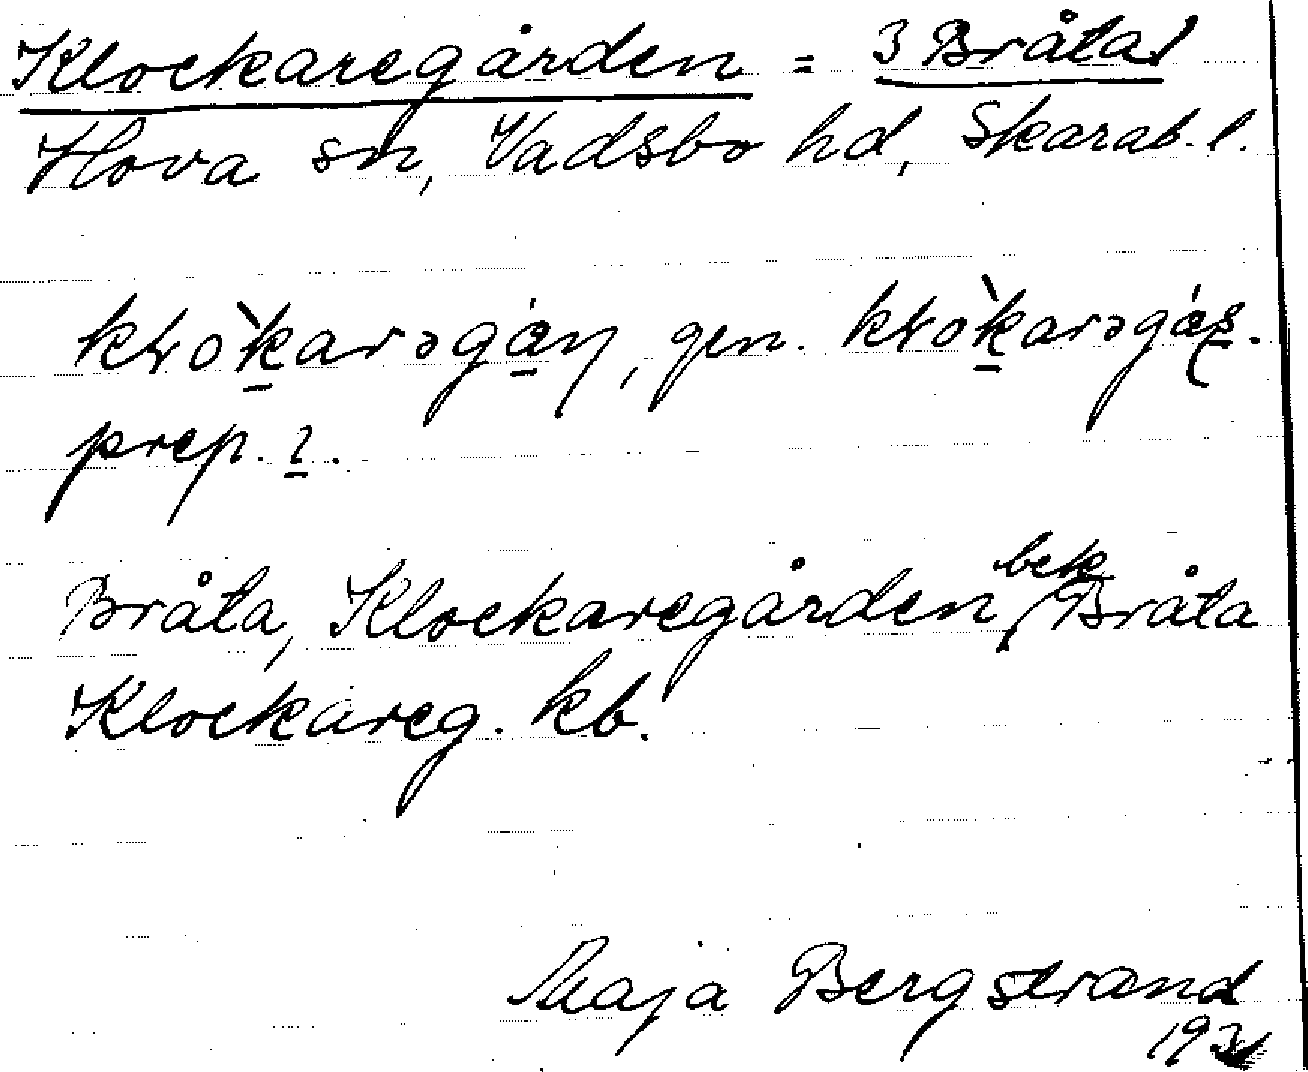 Klockaregården = 3 Bråta
Hova sn, Vadsbo hd, Skarab. l.
kɫò̱karəgá̱ɳ, gen. kɫò̱karəgá̱ʂ.
prep. ɩ̱.
Bråta, Klockaregården, bek Bråta
Klockareg. kb.
Maja Bergstrand